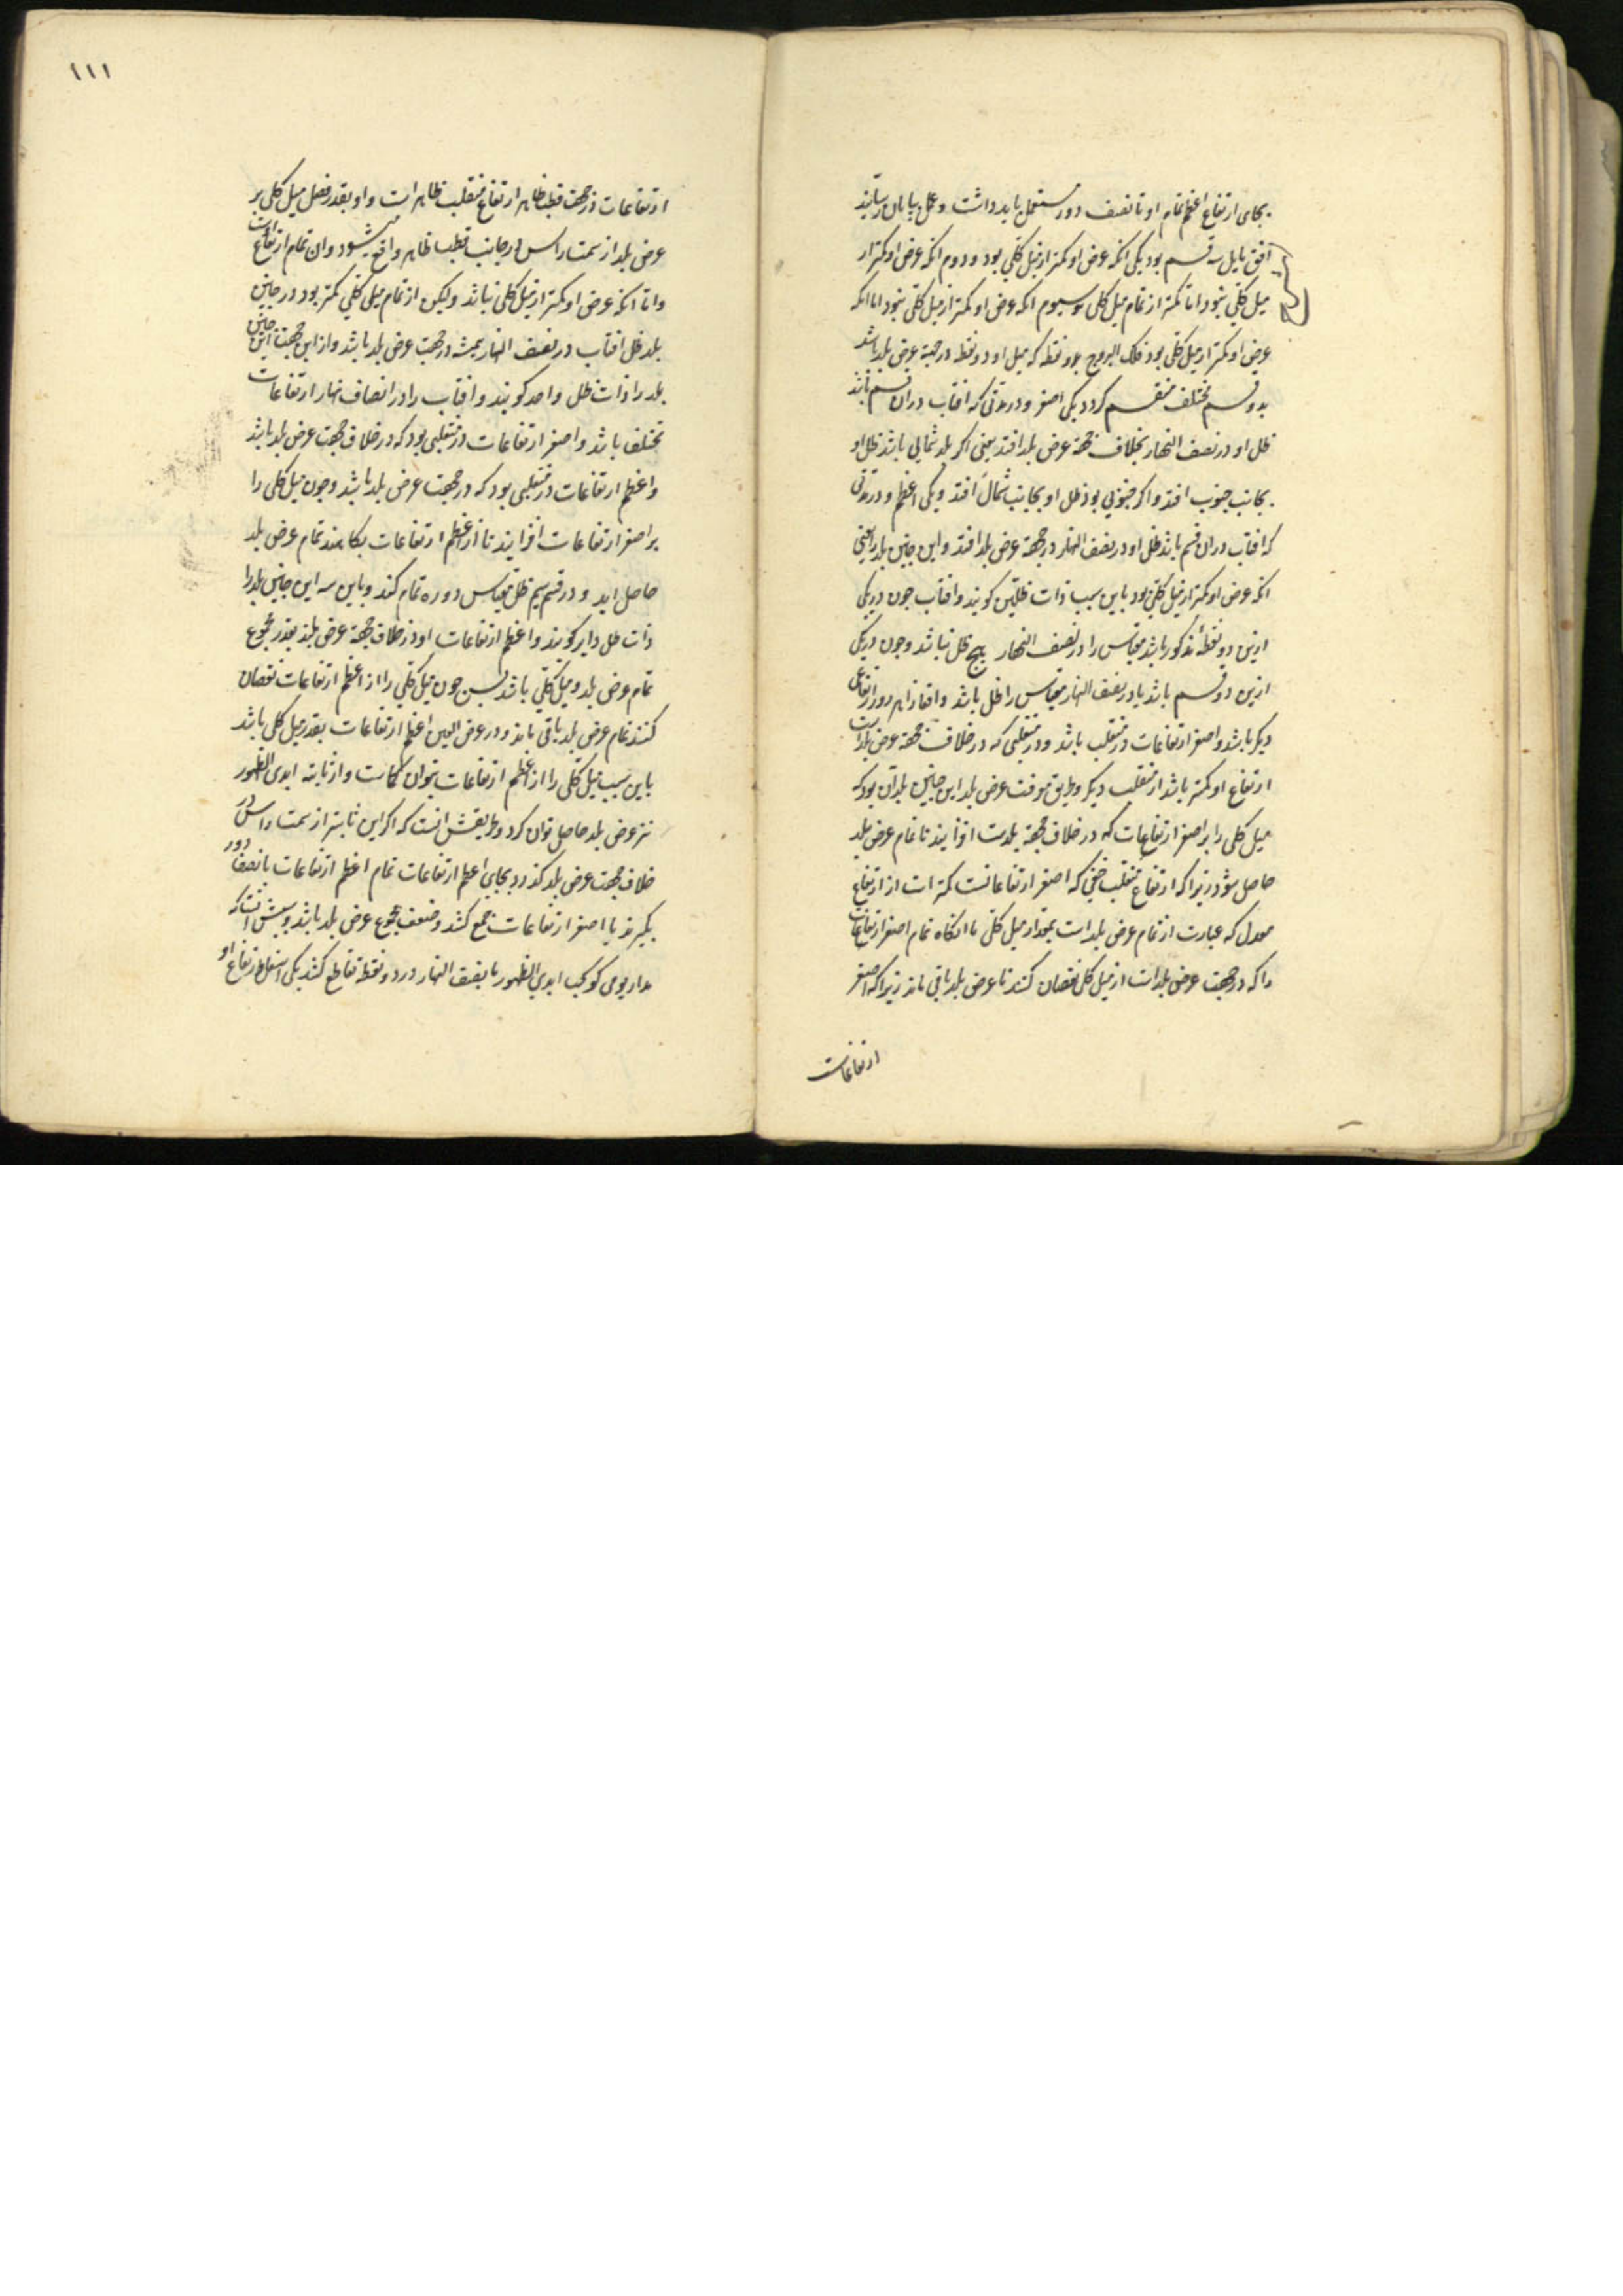 بجای ارتفاع اعظم تمام او تا نصف دور مستعمل باید داشت و عمل بپایان رسانید
افق مایل سه قسم بود یکی انکه عرض او کمتر از میل کلی بود و دوم انکه عرض او کمتر از
میل کلی نبود اما کمتر از تمام میل کلی و سیوم انکه عرض او کمتر از میل کلی نبود اما انکه
عرض او کمتر از میل کلی بود فلک البروج بدو نقطه که میل او دو نقطه در جهة عرض بلد باشد
بدو قسم مختلف منقسم کردد یکی اصغر و در مدتی که افتاب دران قسم باشد
ظل او در نصف النهار بخلاف جهة عرض بلد افتد یعنی اکر بلد شمالی باشد ظل او
بجانب جنوب افتد و اکر جنوبی بود ظل او بجانب شمال افتد و یکی اعظم و در مدتی
که افتاب دران قسم باشد ظل او در نصف النهار در جهة عرض بلد افتد و این چنین بلد را یعنی
انکه عرض او کمتر از میل کلی بود باین سبب ذات ظلین کویند و افتاب چون در یکی
ازین دو نقطه مذکور باشد مقیاس را در نصف النهار هیچ ظل نباشد و چون در یکی
ازین دو قسم باشد یا در نصف النهار مقیاس را ظل باشد و افتاب را هر روز ارتفاعی
دیکر باشد و اصغر ارتفاعات در منقلب باشد و در منقلبی که در خلاف جهة عرض بلد است
ارتفاع او کمتر باشد از منقلب دیکر و طریق معرفت عرض بلد این چنین بلد آن بود که
میل کلی را بر اصغر ارتفاعات که در خلاف جهة بلدست افزایند تا تمام عرض بلد
حاصل شود زیرا که ارتفاع منقلب خفی که اصغر ارتفاعاتست کمتر است از ارتفاع
معدل که عبارت از تمام عرض بلد است بمقدار میل کلی یا انکاه تمام اصغر ارتفاعات
را که در جهت عرض بلد است از میل کلی نقصان کنند تا عرض بلد باقی ماند زیرا که اصغر
ارتفاعات
۱۱۱
ارتفاعات در جهت قطب ظاهر ارتفاع منقلب ظاهر است و او بقدر فضل میل کلی بر
عرض بلد از سمت راس در جانب قطب ظاهر واقع میشود و ان تمام ارتفاع است
و اما انکه عرض او کمتر از میل کلی نباشد ولیکن از تمام میل کلی کمتر بود در چنین
بلد ظل افتاب در نصف النهار همیشه در جهت عرض بلد باشد و از این جهت این چنین
بلد را ذات ظل واحد کویند و افتاب را در انصاف نهار ارتفاعات
مختلف باشد و اصغر ارتفاعات در منقلبی بود که در خلاف جهت عرض بلد باشد
و اعظم ارتفاعات در منقلبی بود که در جهت عرض بلد باشد و چون میل کلی را
بر اصغر ارتفاعات افزایند تا از اعظم ارتفاعات بکاهند تمام عرض بلد
حاصل اید و در قسم سیم ظل مقیاس دوره تمام کند و باین سبب این چنین بلد را
ذات ظل دایر کویند و اعظم ارتفاعات او در خلاف جهة عرض بلد بقدر مجموع
تمام عرض بلد و میل کلی باشد پس چون میل کلی را از اعظم ارتفاعات نقصان
کنند تمام عرض بلد باقی ماند و در عرض تسعین اعظم ارتفاعات بقدر میل کلی باشد
باین سبب میل کلی را از اعظم ارتفاعات نتوان کاست و از ثابته ابدی الظهور
نیز عرض بلد حاصل توان کرد و طریقش انست که اکر این ثابته از سمت راس در
خلاف جهت عرض بلد کذرد بجای اعظم ارتفاعات تمام اعظم ارتفاعات با نصف دور
بکیرند با اصغر ارتفاعات جمع کنند و نصف مجموع عرض بلد باشد و سببش انست که
مدار یومی کوکب ابدی الظهور با نصف النهار در دو نقطه تقاطع کنند یکی اسفل و ارتفاع او